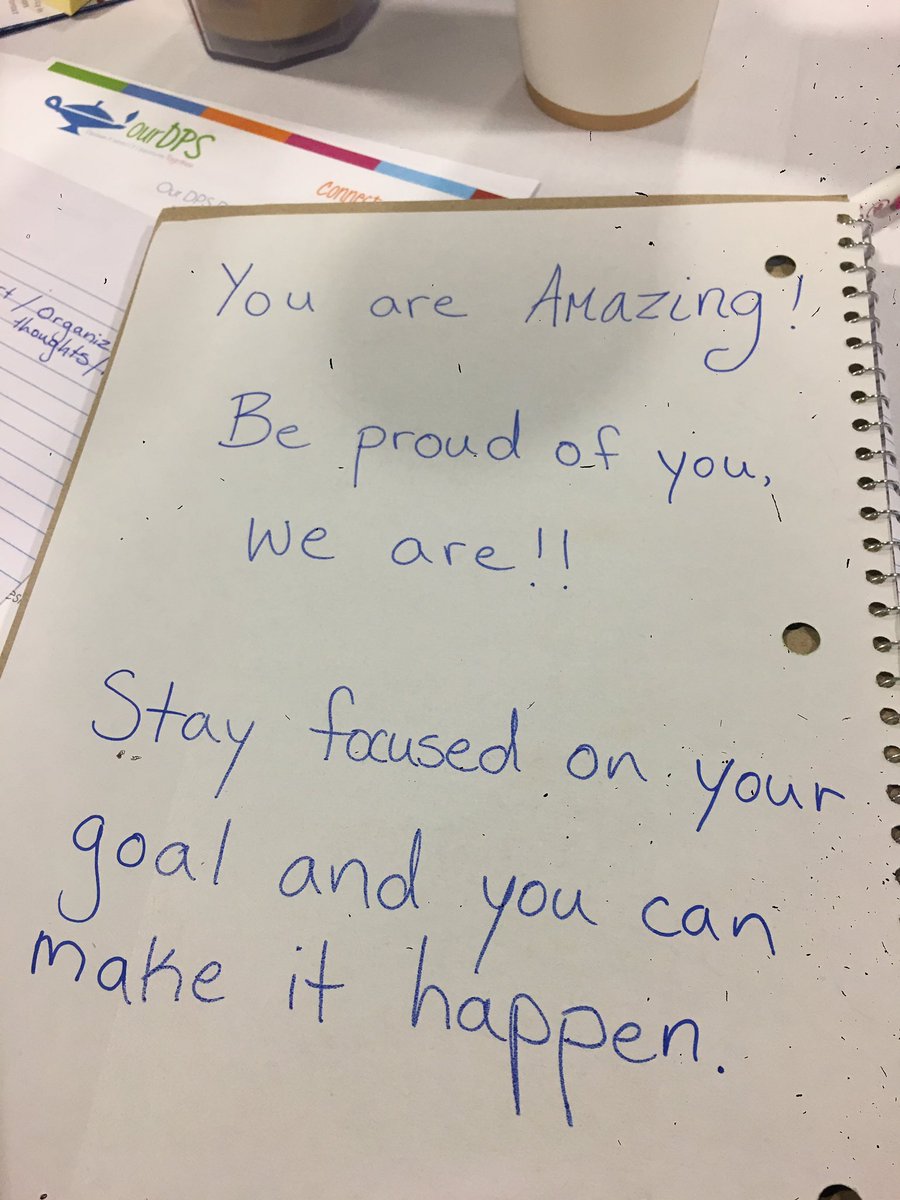 ourDPS
Our DPS
Connect
ct/Organiz
thoughts/
You are Amazing!
Be proud of you,
We are!!
Stay focused on your
goal and you can
make it happen.